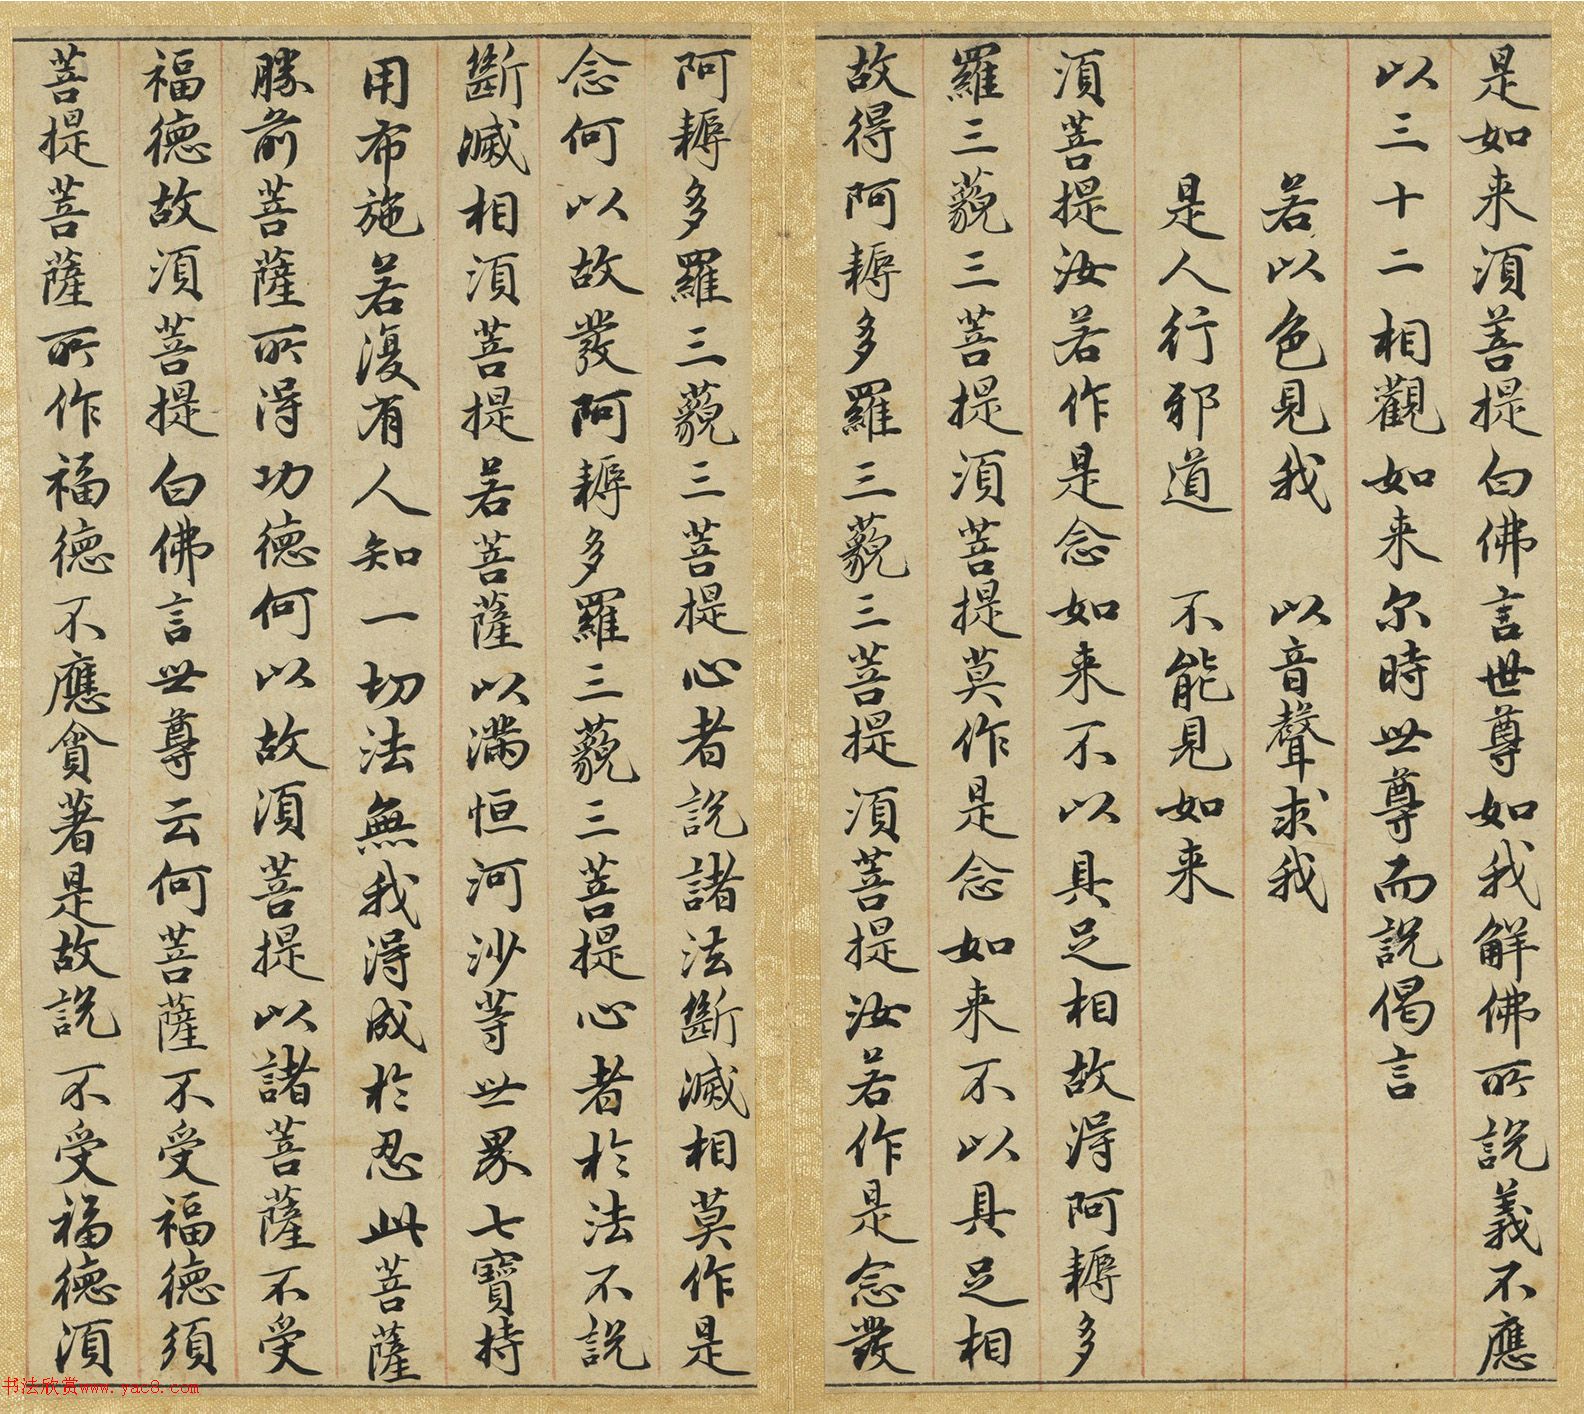 是如来須菩提白佛言世尊如我解佛所說義不應
以三十二相觀如来尔時世尊而說偈言
若以色見我 以音聲求我
是人行邪道 不能見如来
須菩提汝若作是念如来不以具足相故得阿耨多
羅三藐三菩提須菩提莫作是念如来不以具足相
故得阿耨多羅三藐三菩提須菩提汝若作是念發
阿耨多羅三藐三菩提心者說諸法斷滅相莫作是
念何以故發阿耨多羅三藐三菩提心者於法不說
斷滅相須菩提若菩薩以滿恒河沙等世界七寶持
用布施若復有人知一切法無我得成於忍此菩薩
勝前菩薩所得功德何以故須菩提以諸菩薩不受
福德故須菩提白佛言世尊云何菩薩不受福德須
菩提菩薩所作福德不應貪著是故說不受福德須
书法欣赏www.yac8.com